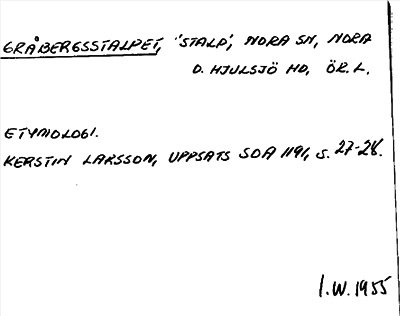 GRÅBERGSSTALPET, "STALP", NORA SN, NORA
O. HJULSJÖ HD, ÖR. L.
ETYMOLOGI.
KERSTIN LARSSON, UPPSATS SOA 1191, S. 27-28.
I.W. 1955